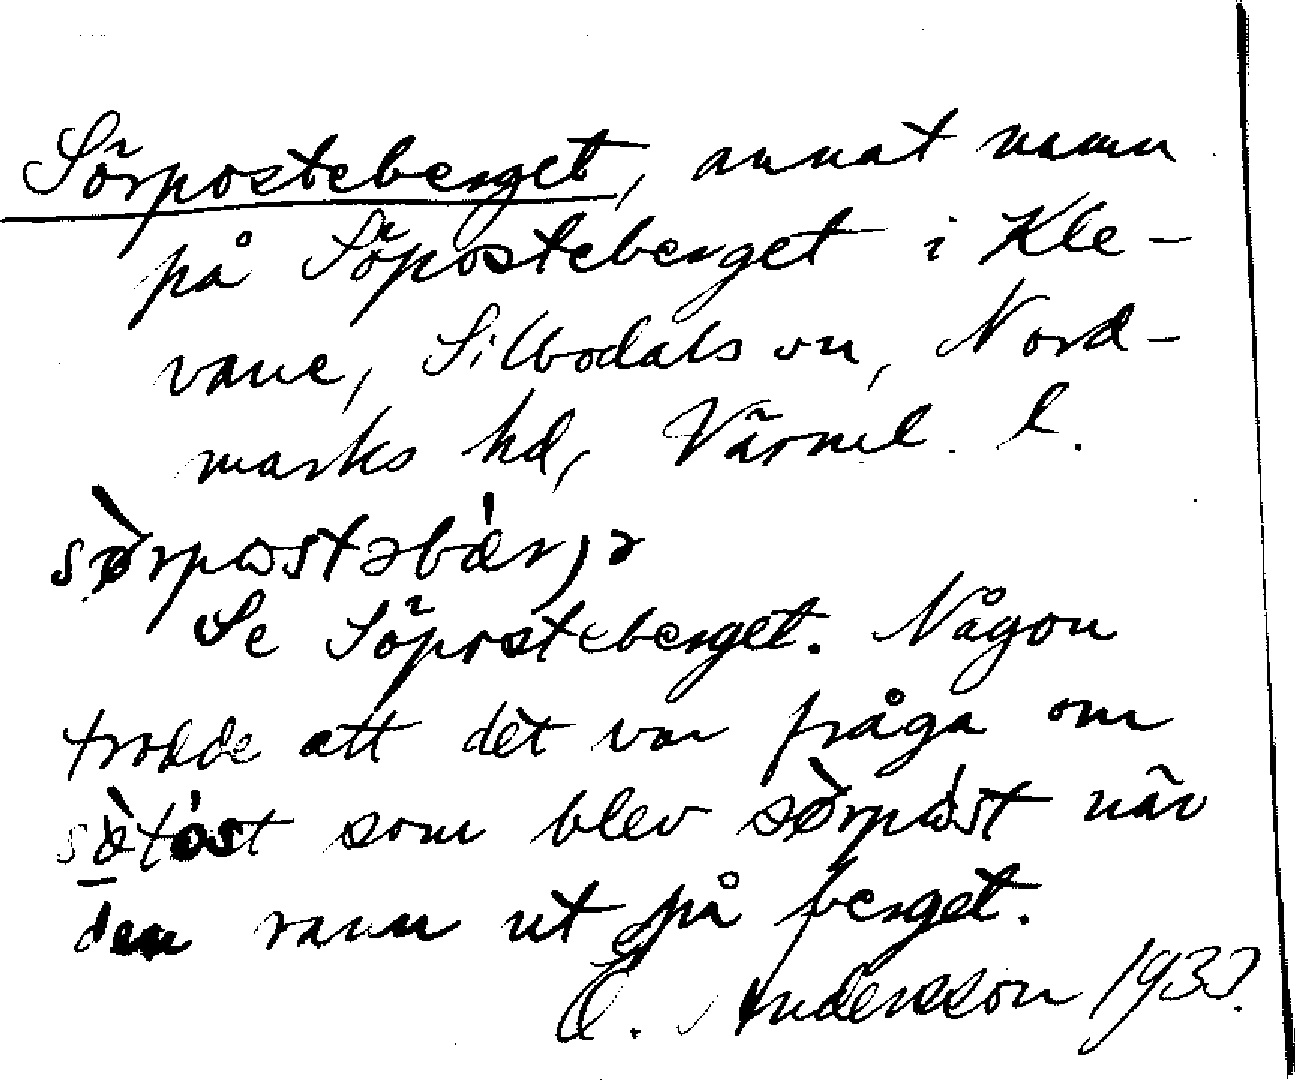 Sörposteberget, annat namn
på Söposteberget i Kle-
vane, Silbodals sn, Nord-
marks hd, Värml. l.
sø̀rpɷstəbǽrjə
Se Söposteberget. Någon
trodde att det var fråga om
sø̀tóst som blev sø̀rpɷ́st när
den rann ut på berget.
Ö. Andersson 1933.